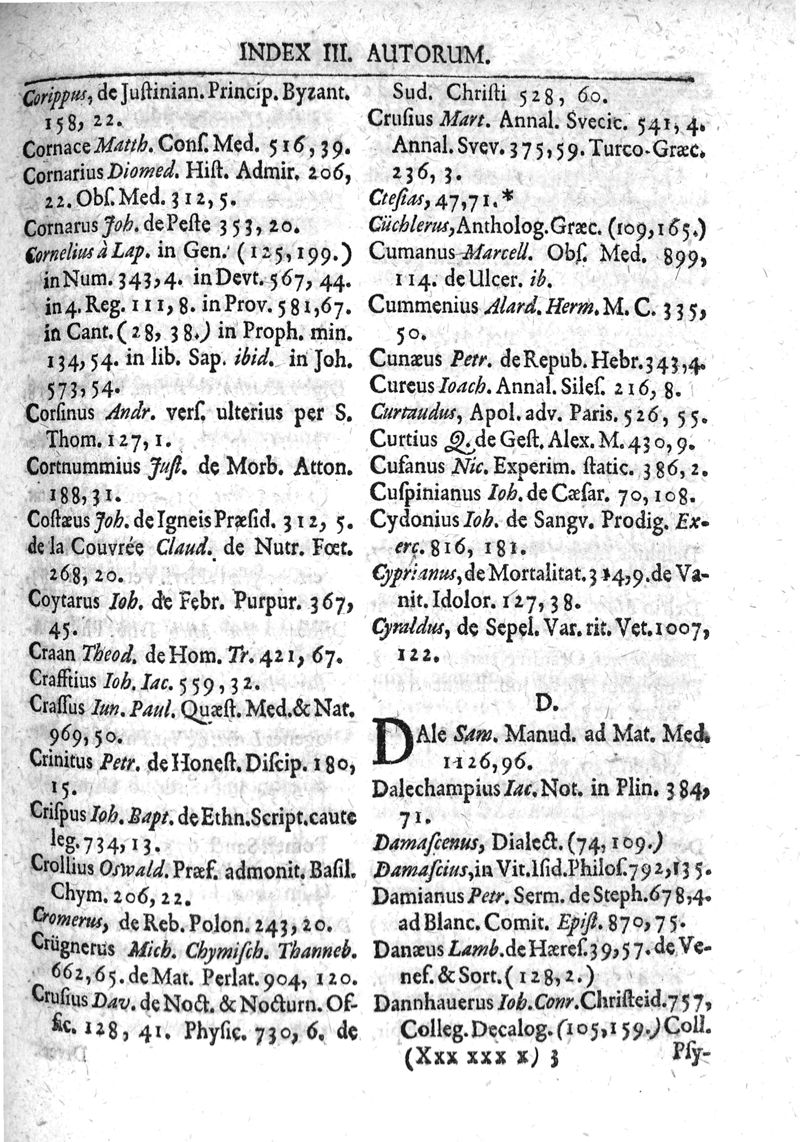 INDEX III. AUTORUM.
Corippus, de Juſtinian. Princip. Byzant.
158, 22.
Cornace Matth. Conſ. Med. 516, 39.
Cornarius Diomed. Hiſt. Admir. 206,
22. Obſ. Med. 312, 5.
Cornarus Joh. de Peſte 353, 20.
Cornelius à Lap. in Gen. (125, 199.)
in Num. 343, 4. in Devt. 567, 44.
in 4. Reg. 111, 8. in Prov. 581, 67.
in Cant. (28, 38.) in Proph. min.
134, 54. in lib. Sap. ibid. in Joh.
573, 54.
Corſinus Andr. verſ. ulterius per S.
Thom. 127, 1.
Cortnummius Juſt. de Morb. Atton.
188, 31.
Coſtæus Joh. de Igneis Præſid. 312, 5.
de la Couvrée Claud. de Nutr. Fœt.
268, 20.
Coytarus Ioh. de Febr. Purpur. 367,
45.
Craan Theod. de Hom. Tr. 421, 67.
Crafftius Ioh. Iac. 559, 32.
Craſſus Iun. Paul. Quæſt. Med. & Nat.
969, 50.
Crinitus Petr. de Honeſt. Diſcip. 180,
15.
Criſpus Ioh. Bapt. de Ethn. Script. caute
leg. 734, 13.
Crollius Oswald. Præf. admonit. Baſil.
Chym. 206, 22.
Cromerus, de Reb. Polon. 243, 20.
Crügnerus Mich. Chymiſch. Thanneb.
662, 65. de Mat. Perlat. 904, 120.
Cruſius Dav. de Noct. & Nocturn. Of-
fic. 128, 41. Phyſic. 730, 6. de
Sud. Chriſti 528, 60.
Cruſius Mart. Annal. Svecic. 541, 4.
Annal. Svev. 375, 59. Turco-Græc.
236, 3.
Cteſias, 47, 71. *
Cüchlerus, Antholog. Græc. (109, 165.)
Cumanus Marcell. Obſ. Med. 899,
114. de Ulcer. ib.
Cummenius Alard. Herm. M. C. 335,
50.
Cunæus Petr. de Repub. Hebr. 343, 4.
Cureus Ioach. Annal. Sileſ. 216, 8.
Curtaudus, Apol. adv. Pariſ. 526, 55.
Curtius Q. de Geſt. Alex. M. 430, 9.
Cuſanus Nic. Experim. ſtatic. 386, 2.
Cuſpinianus Ioh. de Cæſar. 70, 108.
Cydonius Ioh. de Sangv. Prodig. Ex-
erc. 816, 181.
Cyprianus, de Mortalitat. 314, 9. de Va-
nit. Idolor. 127, 38.
Cyraldus, de Sepel. Var. rit. Vet. 1007,
122.
D.
DAle Sam. Manud. ad Mat. Med.
1126, 96.
Dalechampius Iac. Not. in Plin. 384,
71.
Damaſcenus, Dialect. (74, 109.)
Damaſcius, in Vit. Iſid. Philoſ. 792, 135.
Damianus Petr. Serm. de Steph. 678, 4.
ad Blanc. Comit. Epiſt. 870, 75.
Danæus Lamb. de Hæreſ. 39, 57. de Ve-
nef. & Sort. (128, 2.)
Dannhauerus Ioh. Conr. Chriſteid. 757,
Colleg. Decalog. (105, 159.) Coll.
(Xxx xxx x) 3 Pſy-